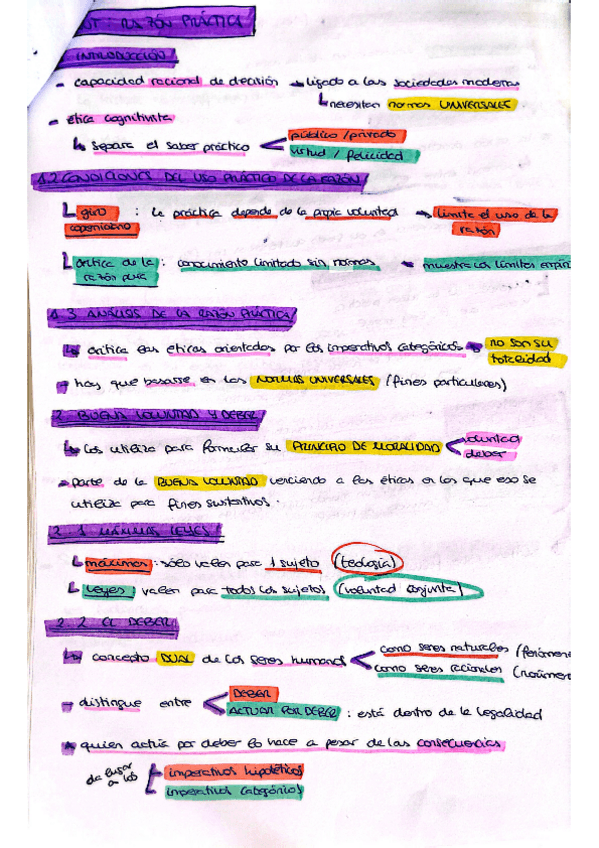 NT: RAZÓN PRÁCTICA
INTRODUCCIÓN
- capacidad racional de decisión → ligado a las sociedades modernas
↳ necesitan normas UNIVERSALES.
- ética cognitivista
↳ separa el saber práctico < público / privado
virtud / felicidad
1.2 CONDICIONES DEL USO PRÁCTICO DE LA RAZÓN
↳ giro copernicano : la práctica depende de la propia voluntad → límite el uso de la razón
↳ crítica de la razón pura : conocimiento limitado sin normas → muestra los límites empír
1.3 ANÁLISIS DE LA RAZÓN PRÁCTICA
↳ crítica las éticas orientadas por los imperativos categóricos → no son su totalidad
→ hay que basarse en las NORMAS UNIVERSALES (fines particulares)
2. BUENA VOLUNTAD Y DEBER
↳ los utiliza para formular su PRINCIPIO DE MORALIDAD < voluntad
deber
→ parte de la BUENA VOLUNTAD venciendo a las éticas en los que eso se
utiliza para fines sustantivos.
2.1 MÁXIMAS LEYES
↳ máximas: sólo valen para 1 sujeto (teología)
↳ Leyes: valen para todos los sujetos (voluntad conjunta)
2.2 EL DEBER
↳ concepto DUAL de los seres humanos < como seres naturales (fenómen
como seres racionales (noúmen
→ distingue entre < DEBER
ACTUAR POR DEBER : está dentro de la legalidad
→ quien actúa por deber lo hace a pesar de las consecuencias
da lugar a los imperativos hipotéticos
imperativos categórico)